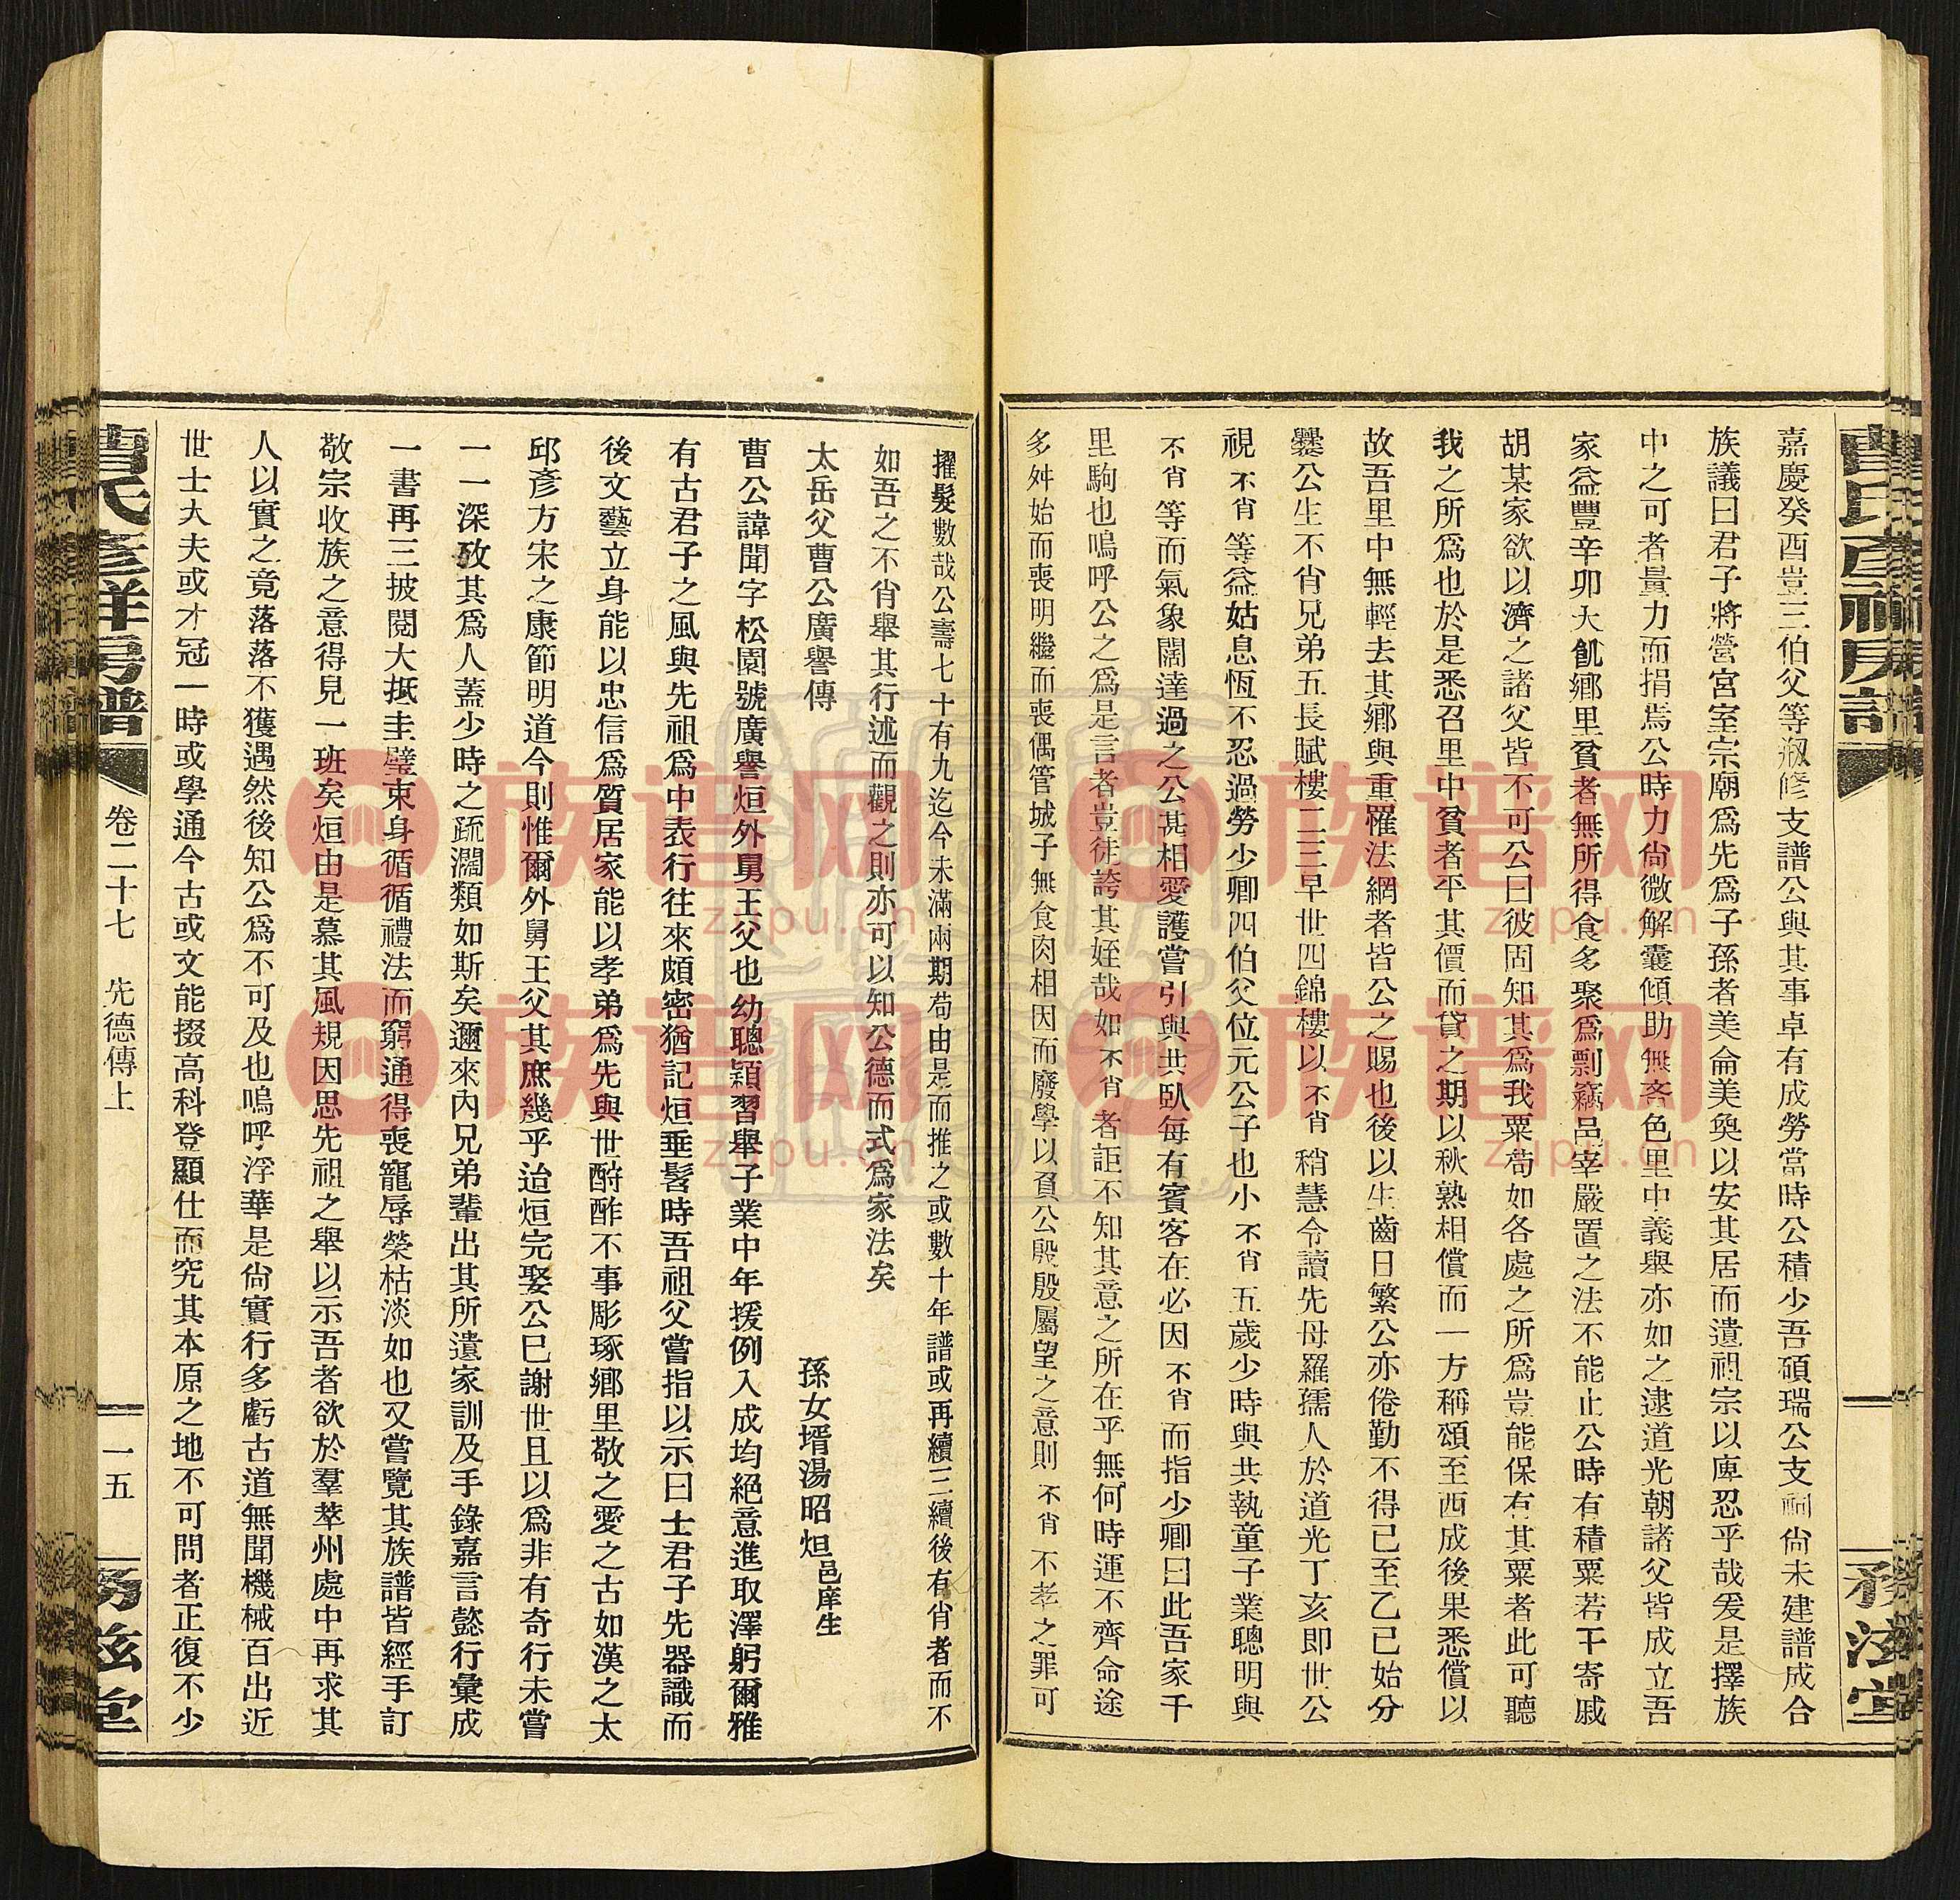 嘉慶癸酉豈三伯父等叔修支譜公與其事卓有成勞當時公積少吾碩瑞公支祠尙未建譜成合
族議曰君子將營宮室宗廟爲先爲子孫者美侖美奐以安其居而遺祖宗以庳忍乎哉爰是擇族
中之可者量力而捐焉公時力尙微解囊傾助無吝色里中義舉亦如之逮道光朝諸父皆成立吾
家益豐辛卯大飢鄕里貧者無所得食多聚爲剽竊邑宰嚴置之法不能止公時有積粟若干寄戚
胡某家欲以濟之諸父皆不可公曰彼固知其爲我粟苟如各處之所爲豈能保有其粟者此可聽
我之所爲也於是悉召里中貧者平其價而貸之期以秋熟相償而一方稱頌至西成後果悉償以
故吾里中無輕去其鄕與重罹法網者皆公之賜也後以生齒日繁公亦倦勤不得已至乙巳始分
爨公生不肖兄弟五長賦樓二三早世四錦樓以不肖稍慧令讀先母羅孺人於道光丁亥卽世公
視不肖等益姑息恆不忍過勞少卿四伯父位元公子也小不肖五歲少時與共執童子業聰明與
不肖等而氣象闊達過之公甚相愛護嘗引與共臥每有賓客在必因不肖而指少卿曰此吾家千
里駒也嗚呼公之爲是言者豈徒誇其姪哉如不肖者詎不知其意之所在乎無何時運不齊命途
多舛始而喪明繼而喪偶管城子無食肉相因而廢學以負公殷殷屬望之意則不肖不孝之罪可
擢髮數哉公壽七十有九迄今未滿兩期苟由是而推之或數十年譜或再續三續後有肖者而不
如吾之不肖舉其行述而觀之則亦可以知公德而式爲家法矣
太岳父曹公廣譽傳
孫女壻湯昭烜邑庠生
曹公諱聞字松園號廣譽烜外舅王父也幼聰穎習舉子業中年援例入成均絕意進取澤躬爾雅
有古君子之風與先祖爲中表行往來頗密猶記烜垂髫時吾祖父嘗指以示曰士君子先器識而
後文藝立身能以忠信爲質居家能以孝弟爲先與世酧酢不事彫琢鄕里敬之愛之古如漢之太
邱彥方宋之康節明道今則惟爾外舅王父其庶幾乎迨烜完娶公已謝世且以爲非有奇行未嘗
一一深攷其爲人蓋少時之疏濶類如斯矣邇來內兄弟輩出其所遺家訓及手錄嘉言懿行彙成
一書再三披閱大抵圭璧束身循循禮法而窮通得喪寵辱榮枯淡如也又嘗覽其族譜皆經手訂
敬宗收族之意得見一班矣烜由是慕其風規因思先祖之舉以示吾者欲於羣萃州處中再求其
人以實之竟落落不獲遇然後知公爲不可及也嗚呼浮華是尙實行多虧古道無聞機械百出近
世士大夫或才冠一時或學通今古或文能掇高科登顯仕而究其本原之地不可問者正復不少
卷二十七　先德傳上
一五